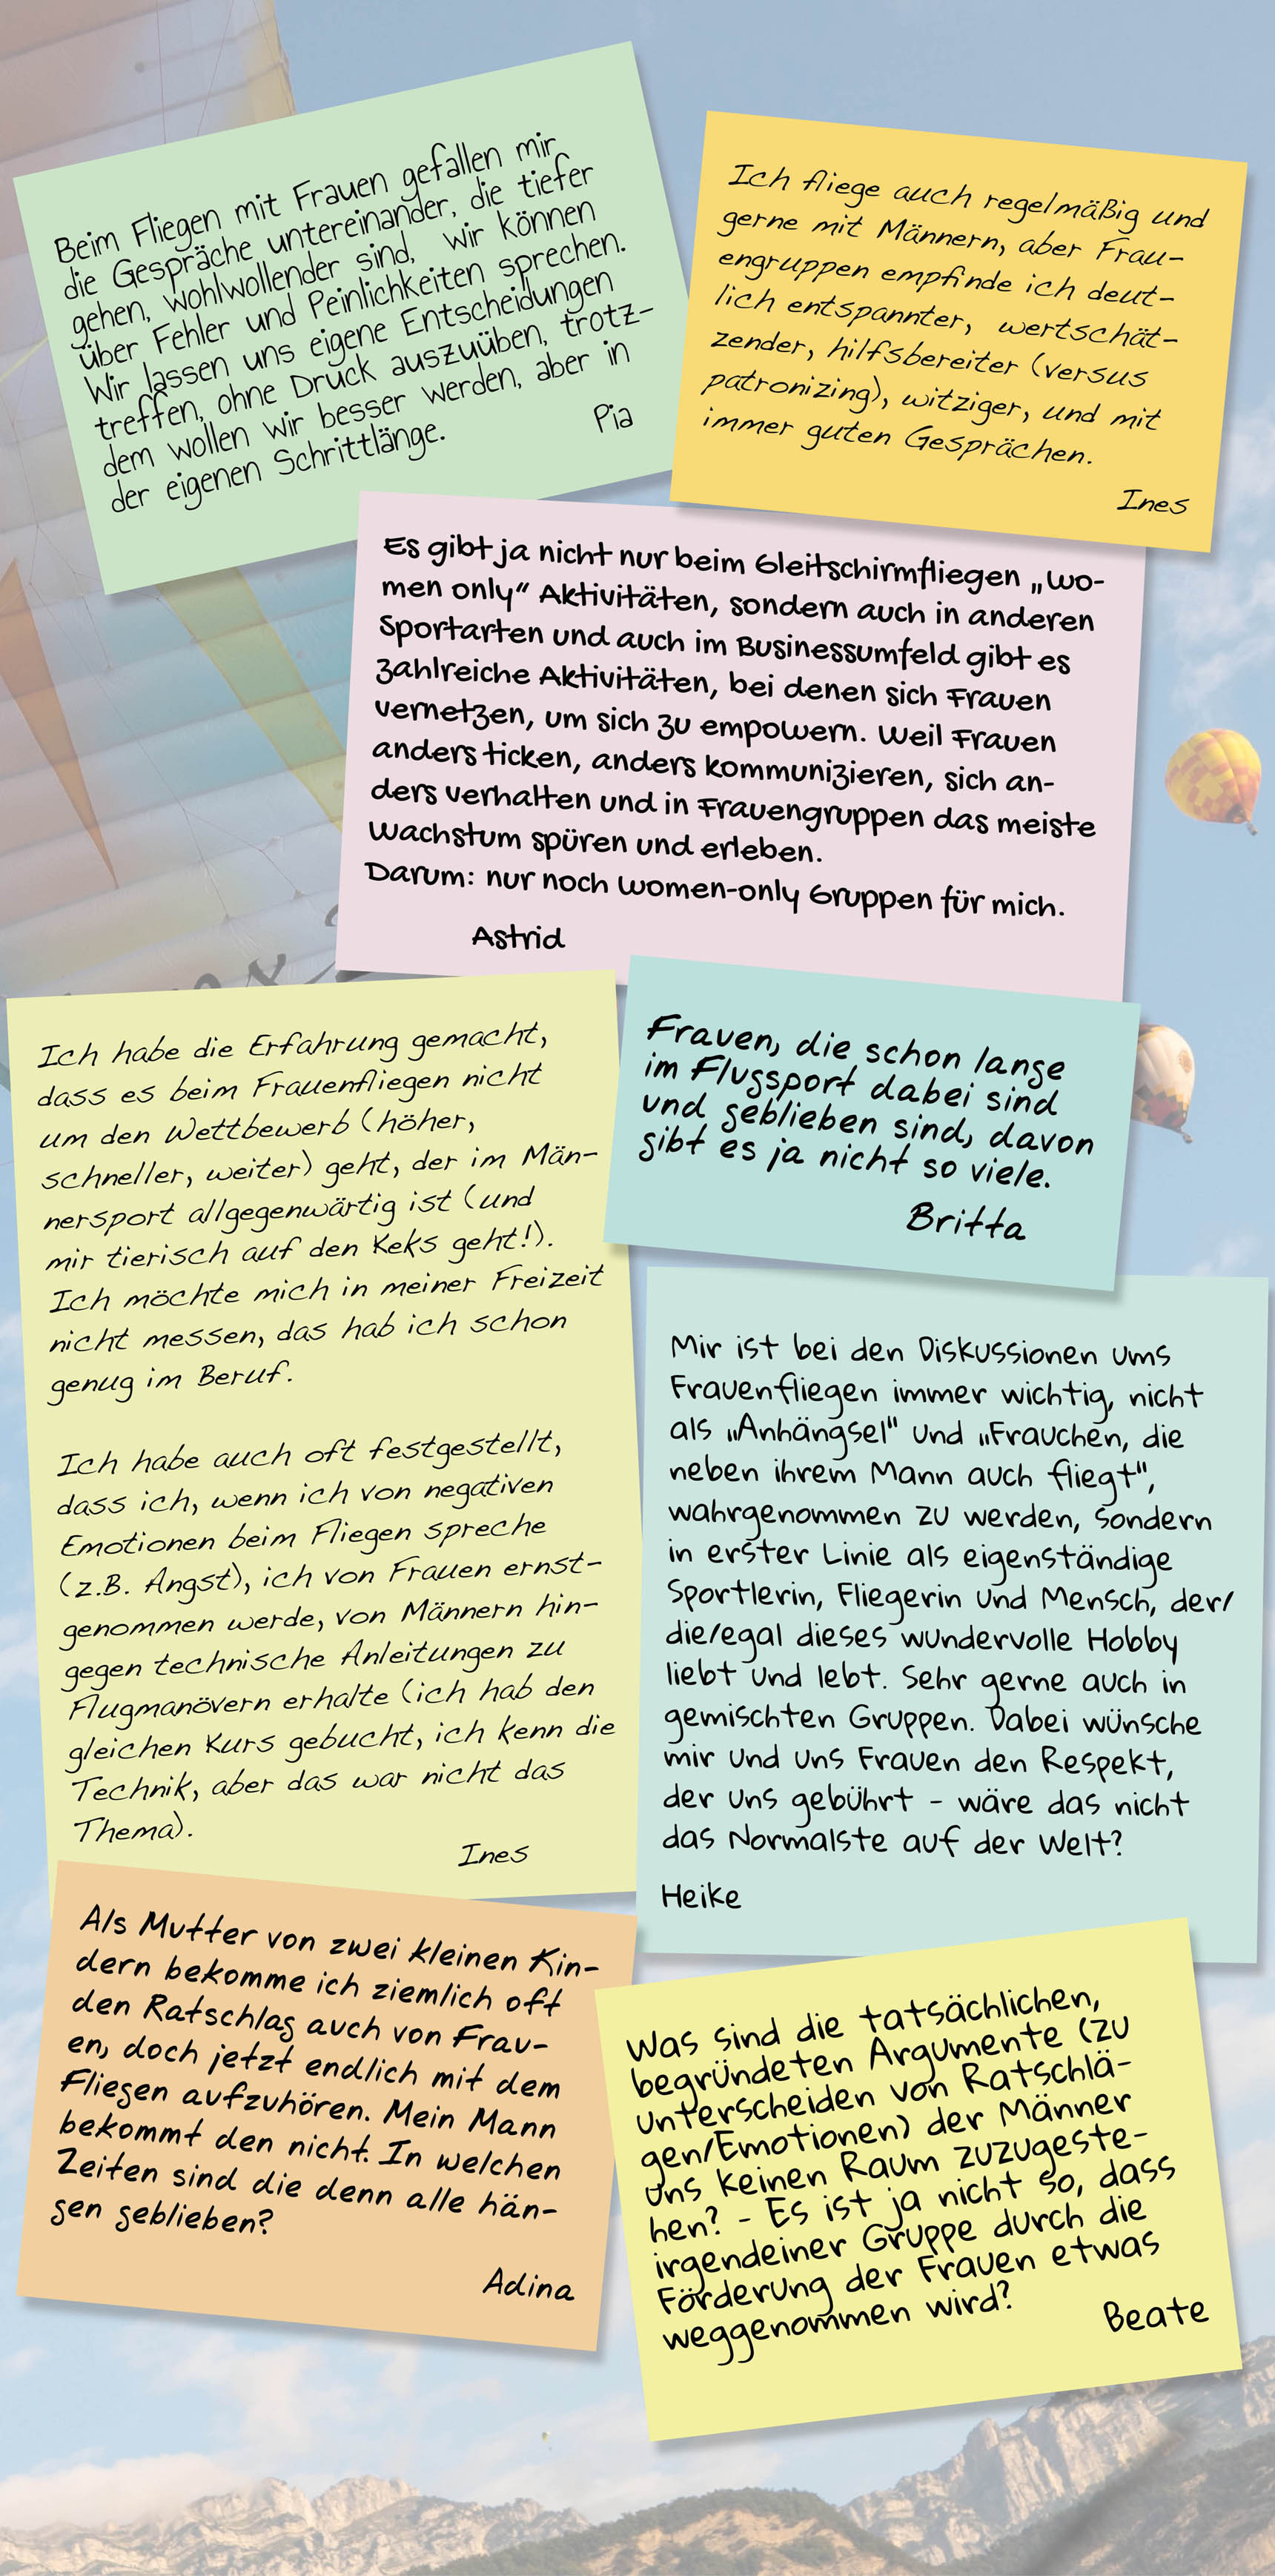 Beim Fliegen mit Frauen gefallen mir
die Gespräche untereinander, die tiefer
gehen, wohlwollender sind, wir können
über Fehler und Peinlichkeiten sprechen.
Wir lassen uns eigene Entscheidungen
treffen, ohne Druck auszuüben, trotz-
dem wollen wir besser werden, aber in
der eigenen Schrittlänge.
Pia
Ich fliege auch regelmäßig und
gerne mit Männern, aber Frau-
engruppen empfinde ich deut-
lich entspannter, wertschät-
zender, hilfsbereiter (versus
patronizing), witziger, und mit
immer guten Gesprächen.
Ines
Es gibt ja nicht nur beim Gleitschirmfliegen „wo-
men only“ Aktivitäten, sondern auch in anderen
Sportarten und auch im Businessumfeld gibt es
zahlreiche Aktivitäten, bei denen sich Frauen
vernetzen, um sich zu empowern. Weil Frauen
anders ticken, anders kommunizieren, sich an-
ders verhalten und in Frauengruppen das meiste
Wachstum spüren und erleben.
Darum: nur noch women-only Gruppen für mich.
Astrid
Ich habe die Erfahrung gemacht,
dass es beim Frauenfliegen nicht
um den Wettbewerb (höher,
schneller, weiter) geht, der im Män-
nersport allgegenwärtig ist (und
mir tierisch auf den Keks geht!).
Ich möchte mich in meiner Freizeit
nicht messen, das hab ich schon
genug im Beruf.
Ich habe auch oft festgestellt,
dass ich, wenn ich von negativen
Emotionen beim Fliegen spreche
(z.B. Angst), ich von Frauen ernst-
genommen werde, von Männern hin-
gegen technische Anleitungen zu
Flugmanövern erhalte (ich hab den
gleichen Kurs gebucht, ich kenn die
Technik, aber das war nicht das
Thema).
Ines
Frauen, die schon lange
im Flugsport dabei sind
und geblieben sind, davon
gibt es ja nicht so viele.
Britta
Mir ist bei den Diskussionen ums
Frauenfliegen immer wichtig, nicht
als „Anhängsel" und „Frauchen, die
neben ihrem Mann auch fliegt",
wahrgenommen zu werden, sondern
in erster Linie als eigenständige
Sportlerin, Fliegerin und Mensch, der/
die/egal dieses wundervolle Hobby
liebt und lebt. Sehr gerne auch in
gemischten Gruppen. Dabei wünsche
mir und uns Frauen den Respekt,
der uns gebührt - wäre das nicht
das Normalste auf der Welt?
Heike
Als Mutter von zwei kleinen Kin-
dern bekomme ich ziemlich oft
den Ratschlag auch von Frau-
en, doch jetzt endlich mit dem
Fliegen aufzuhören. Mein Mann
bekommt den nicht. In welchen
Zeiten sind die denn alle hän-
gen geblieben?
Adina
Was sind die tatsächlichen,
begründeten Argumente (zu
unterscheiden von Ratschlä-
gen/Emotionen) der Männer
uns keinen Raum zuzugeste-
hen? - Es ist ja nicht so, dass
irgendeiner Gruppe durch die
Förderung der Frauen etwas
weggenommen wird?
Beate